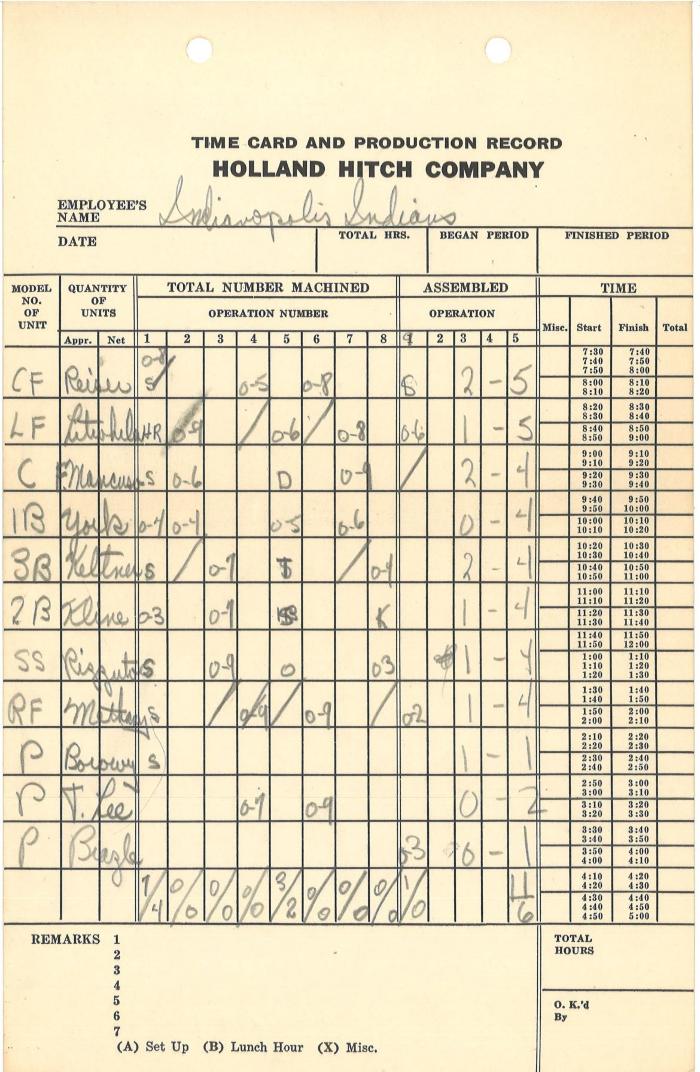 TIME CARD AND PRODUCTION RECORD
HOLLAND HITCH COMPANY
EMPLOYEE'S NAME Indianopolis Indians
DATE TOTAL HRS. BEGAN PERIOD FINISHED PERIOD
MODEL NO. OF UNIT QUANTITY OF UNITS TOTAL NUMBER MACHINED ASSEMBLED TIME
OPERATION NUMBER OPERATION
Appr. Net 1 2 3 4 5 6 7 8 9 2 3 4 5 Misc. Start Finish Total
7:30 7:40
7:40 7:50
7:50 8:00
CF Reiser 0-8 S 0-5 0-8 S 2 - 5
8:00 8:10
8:10 8:20
8:20 8:30
8:30 8:40
LF HR 0-9 0-6 0-8 0-6 1 - 5
8:40 8:50
8:50 9:00
9:00 9:10
9:10 9:20
C F. Mancuso S 0-6 D 0-9 2 - 4
9:20 9:30
9:30 9:40
9:40 9:50
9:50 10:00
1B York 0-7 0-4 0-5 0-6 0 - 4
10:00 10:10
10:10 10:20
10:20 10:30
10:30 10:40
3B Keltner S 0-7 0-9 2 - 4
10:40 10:50
10:50 11:00
11:00 11:10
11:10 11:20
2B Kline 0-3 0-9 K 1 - 4
11:20 11:30
11:30 11:40
11:40 11:50
11:50 12:00
SS Rizzuto S 0-9 0 03 1 - 4
1:00 1:10
1:10 1:20
1:20 1:30
1:30 1:40
1:40 1:50
RF Metheny S 0-9 0-9 0-2 1 - 4
1:50 2:00
2:00 2:10
2:10 2:20
2:20 2:30
P Borowy S 1 - 1
2:30 2:40
2:40 2:50
2:50 3:00
3:00 3:10
P T. Lee 0-7 0-9 0 - 2
3:10 3:20
3:20 3:30
3:30 3:40
3:40 3:50
P Beazle 0-3 0 - 1
3:50 4:00
4:00 4:10
4:10 4:20
4:20 4:30
1/4 0/0 0/0 0/0 3/2 0/0 0/0 0/0 1/0 4 6
4:30 4:40
4:40 4:50
4:50 5:00
REMARKS 1 TOTAL HOURS
2
3
4
5
6 O. K.'d By
7
(A) Set Up (B) Lunch Hour (X) Misc.